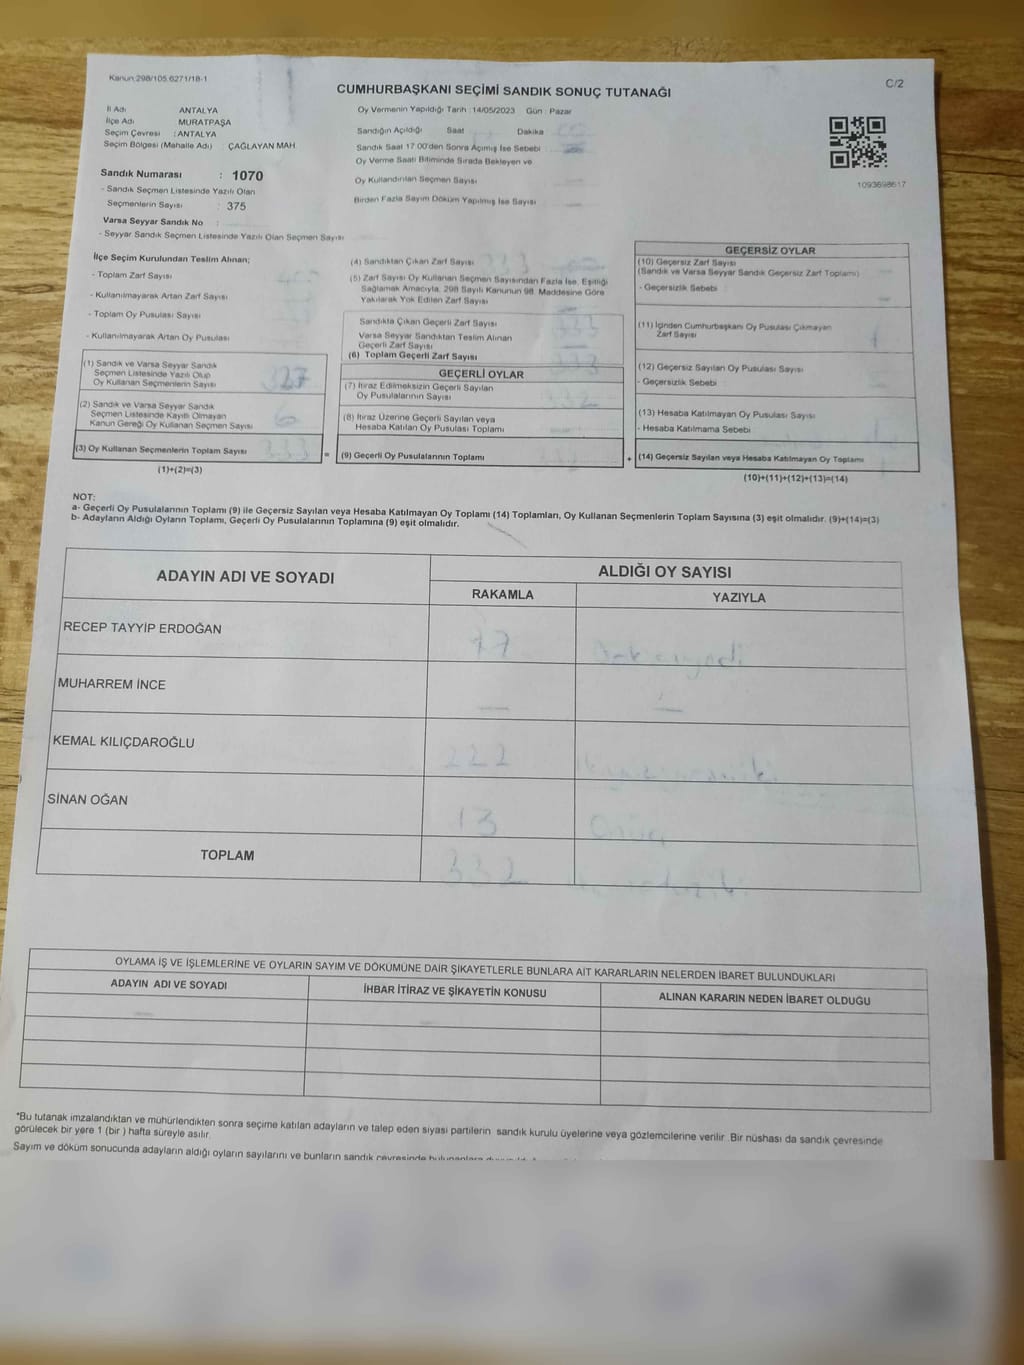 Kanun 298/105 6271/18-1
C/2
CUMHURBAŞKANI SEÇİMİ SANDIK SONUÇ TUTANAĞI
İl Adı ANTALYA
İlçe Adı MURATPAŞA
Seçim Çevresi : ANTALYA
Seçim Bölgesi (Mahalle Adı) ÇAĞLAYAN MAH.
Oy Vermenin Yapıldığı Tarih : 14/05/2023 Gün : Pazar
Sandığın Açıldığı Saat Dakika
Sandık Saat 17 00'den Sonra Açımış İse Sebebi
Oy Verme Saati Bitiminde Sırada Bekleyen ve
Oy Kullandırılan Seçmen Sayısı
Birden Fazla Sayım Döküm Yapılmış İse Sayısı
1093698617
Sandık Numarası : 1070
- Sandık Seçmen Listesinde Yazılı Olan
Seçmenlerin Sayısı : 375
Varsa Seyyar Sandık No :
- Seyyar Sandık Seçmen Listesinde Yazılı Olan Seçmen Sayısı
İlçe Seçim Kurulundan Teslim Alınan;
- Toplam Zarf Sayısı
- Kullanılmayarak Artan Zarf Sayısı
- Toplam Oy Pusulası Sayısı
- Kullanılmayarak Artan Oy Pusulası
(1) Sandık ve Varsa Seyyar Sandık
Seçmen Listesinde Yazılı Olup
Oy Kullanan Seçmenlerin Sayısı 327
(2) Sandık ve Varsa Seyyar Sandık
Seçmen Listesinde Kayıtlı Olmayan
Kanun Gereği Oy Kullanan Seçmen Sayısı 6
(3) Oy Kullanan Seçmenlerin Toplam Sayısı 333
(1)+(2)=(3)
(4) Sandıktan Çıkan Zarf Sayısı 333
(5) Zarf Sayısı Oy Kullanan Seçmen Sayısından Fazla İse, Eşitliği
Sağlamak Amacıyla, 298 Sayılı Kanunun 98. Maddesine Göre
Yakılarak Yok Edilen Zarf Sayısı
Sandıkta Çıkan Geçerli Zarf Sayısı 333
Varsa Seyyar Sandıktan Teslim Alınan
Geçerli Zarf Sayısı
(6) Toplam Geçerli Zarf Sayısı 333
GEÇERLİ OYLAR
(7) İtiraz Edilmeksizin Geçerli Sayılan
Oy Pusulalarının Sayısı 332
(8) İtiraz Üzerine Geçerli Sayılan veya
Hesaba Katılan Oy Pusulası Toplamı
= (9) Geçerli Oy Pusulalarının Toplamı 332 +
GEÇERSİZ OYLAR
(10) Geçersiz Zarf Sayısı
(Sandık ve Varsa Seyyar Sandık Geçersiz Zarf Toplamı)
- Geçersizlik Sebebi
(11) İçinden Cumhurbaşkanı Oy Pusulası Çıkmayan
Zarf Sayısı 1
(12) Geçersiz Sayılan Oy Pusulası Sayısı
- Geçersizlik Sebebi
(13) Hesaba Katılmayan Oy Pusulası Sayısı
- Hesaba Katılmama Sebebi
(14) Geçersiz Sayılan veya Hesaba Katılmayan Oy Toplamı
(10)+(11)+(12)+(13)=(14)
NOT:
a- Geçerli Oy Pusulalarının Toplamı (9) ile Geçersiz Sayılan veya Hesaba Katılmayan Oy Toplamı (14) Toplamları, Oy Kullanan Seçmenlerin Toplam Sayısına (3) eşit olmalıdır. (9)+(14)=(3)
b- Adayların Aldığı Oyların Toplamı, Geçerli Oy Pusulalarının Toplamına (9) eşit olmalıdır.
ADAYIN ADI VE SOYADI ALDIĞI OY SAYISI
RAKAMLA YAZIYLA
RECEP TAYYİP ERDOĞAN
MUHARREM İNCE — —
KEMAL KILIÇDAROĞLU 222
SİNAN OĞAN 13 Onüç
TOPLAM 332
OYLAMA İŞ VE İŞLEMLERİNE VE OYLARIN SAYIM VE DÖKÜMÜNE DAİR ŞİKAYETLERLE BUNLARA AİT KARARLARIN NELERDEN İBARET BULUNDUKLARI
ADAYIN ADI VE SOYADI İHBAR İTİRAZ VE ŞİKAYETİN KONUSU ALINAN KARARIN NEDEN İBARET OLDUĞU
*Bu tutanak imzalandıktan ve mühürlendikten sonra seçime katılan adayların ve talep eden siyasi partilerin sandık kurulu üyelerine veya gözlemcilerine verilir. Bir nüshası da sandık çevresinde
görülecek bir yere 1 (bir ) hafta süreyle asılır.
Sayım ve döküm sonucunda adayların aldığı oyların sayılarını ve bunların sandık çevresinde